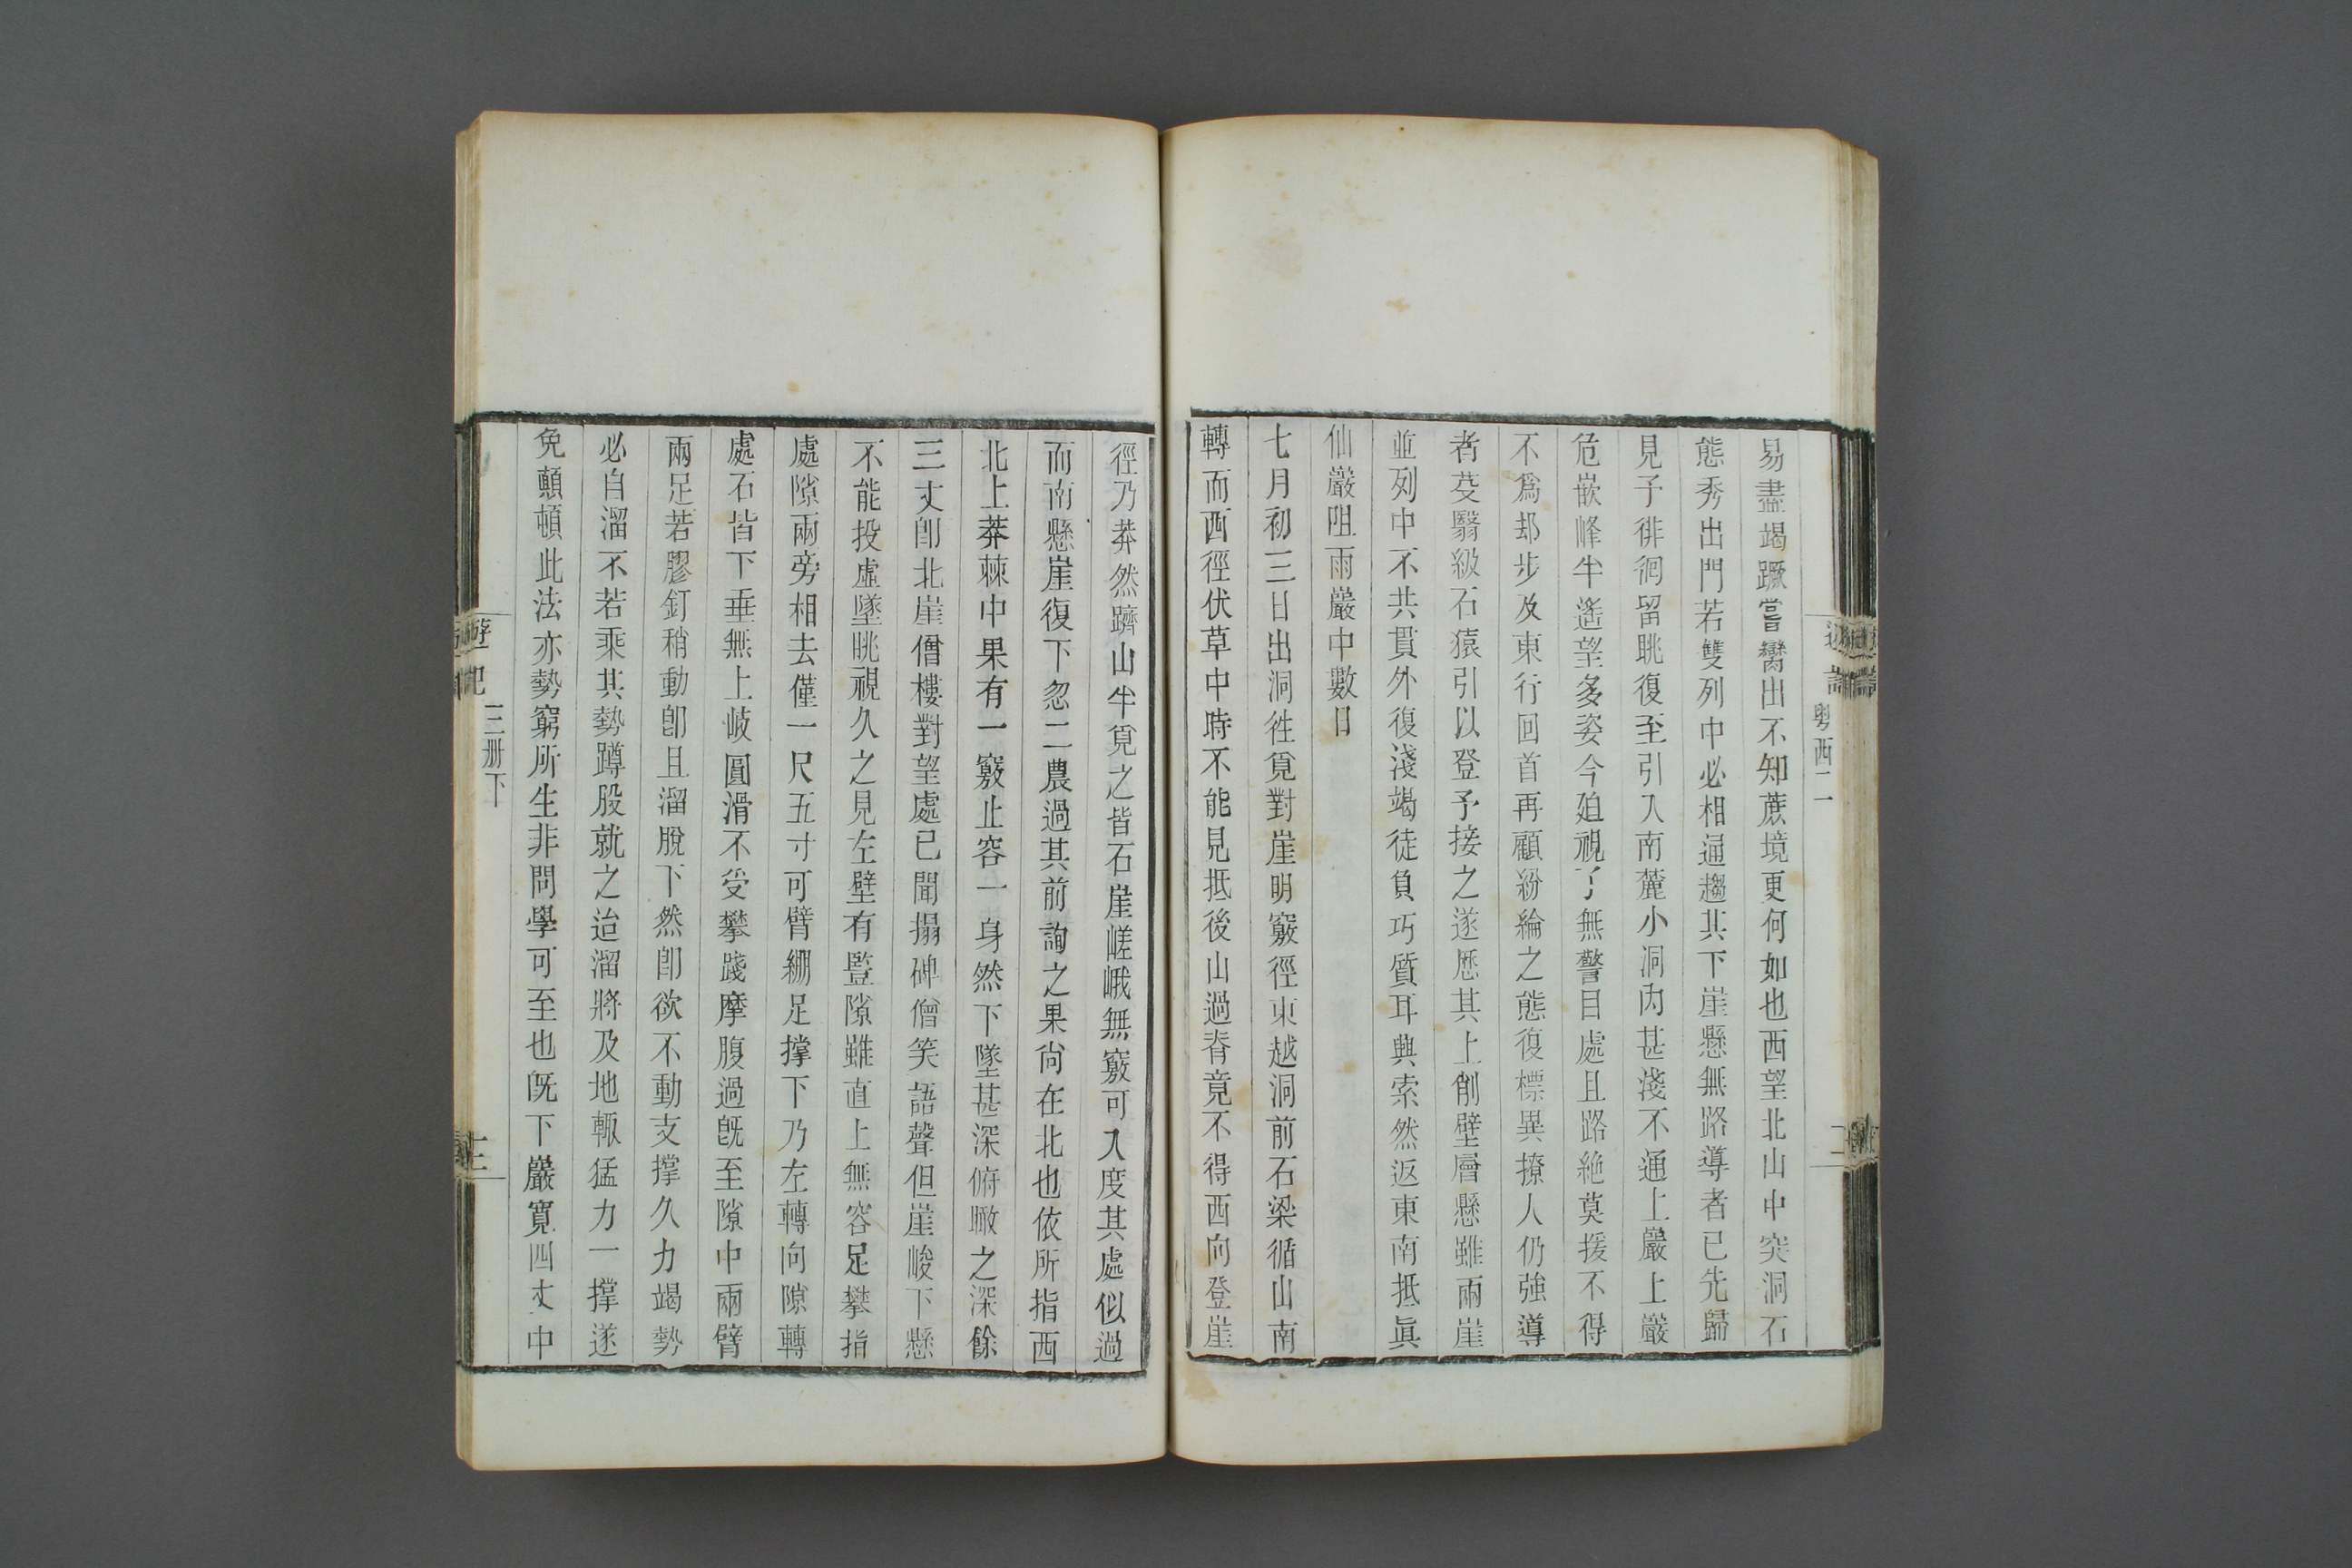 易盡竭蹶嘗臠出不知蔗境更何如也西望北山中突洞石
態秀出門若雙列中必相通趨其下崖懸無路導者已先歸
見予徘徊留眺復至引入南麓小洞內甚淺不通上巖上巖
危嵌峰半遙望多姿今廹視了無警目處且路絶莫援不得
不爲却步及東行回首再顧紛綸之態復標異撩人仍強導
者芟翳級石猿引以登予接之遂歷其上削壁層懸雖兩崖
並列中不共貫外復淺竭徒負巧質耳興索然返東南抵眞
仙巖阻雨巖中數日
七月初三日出洞徃覓對崖明竅徑東越洞前石梁循山南
轉而西徑伏草中時不能見抵後山過脊竟不得西向登崖
粤西二
徑乃莽然躋山半覓之皆石崖嵯峨無竅可入度其處似過
而南懸崖復下忽二農過其前詢之果尙在北也依所指西
北上莽棘中果有一竅止容一身然下墜甚深俯瞰之深餘
三丈卽北崖僧樓對望處已聞搨碑僧笑語聲但崖峻下懸
不能投虛墜眺視久之見左壁有豎隙雖直上無容足攀指
處隙兩旁相去僅一尺五寸可臂綳足撐下乃左轉向隙轉
處石皆下垂無上岐圓滑不受攀踐摩腹過旣至隙中兩臂
兩足若膠釘稍動卽且溜脫下然卽欲不動支撐久力竭勢
必自溜不若乘其勢蹲股就之迨溜將及地輙猛力一撐遂
免顛頓此法亦勢窮所生非問學可至也旣下巖寬四丈中
遊記
三册下